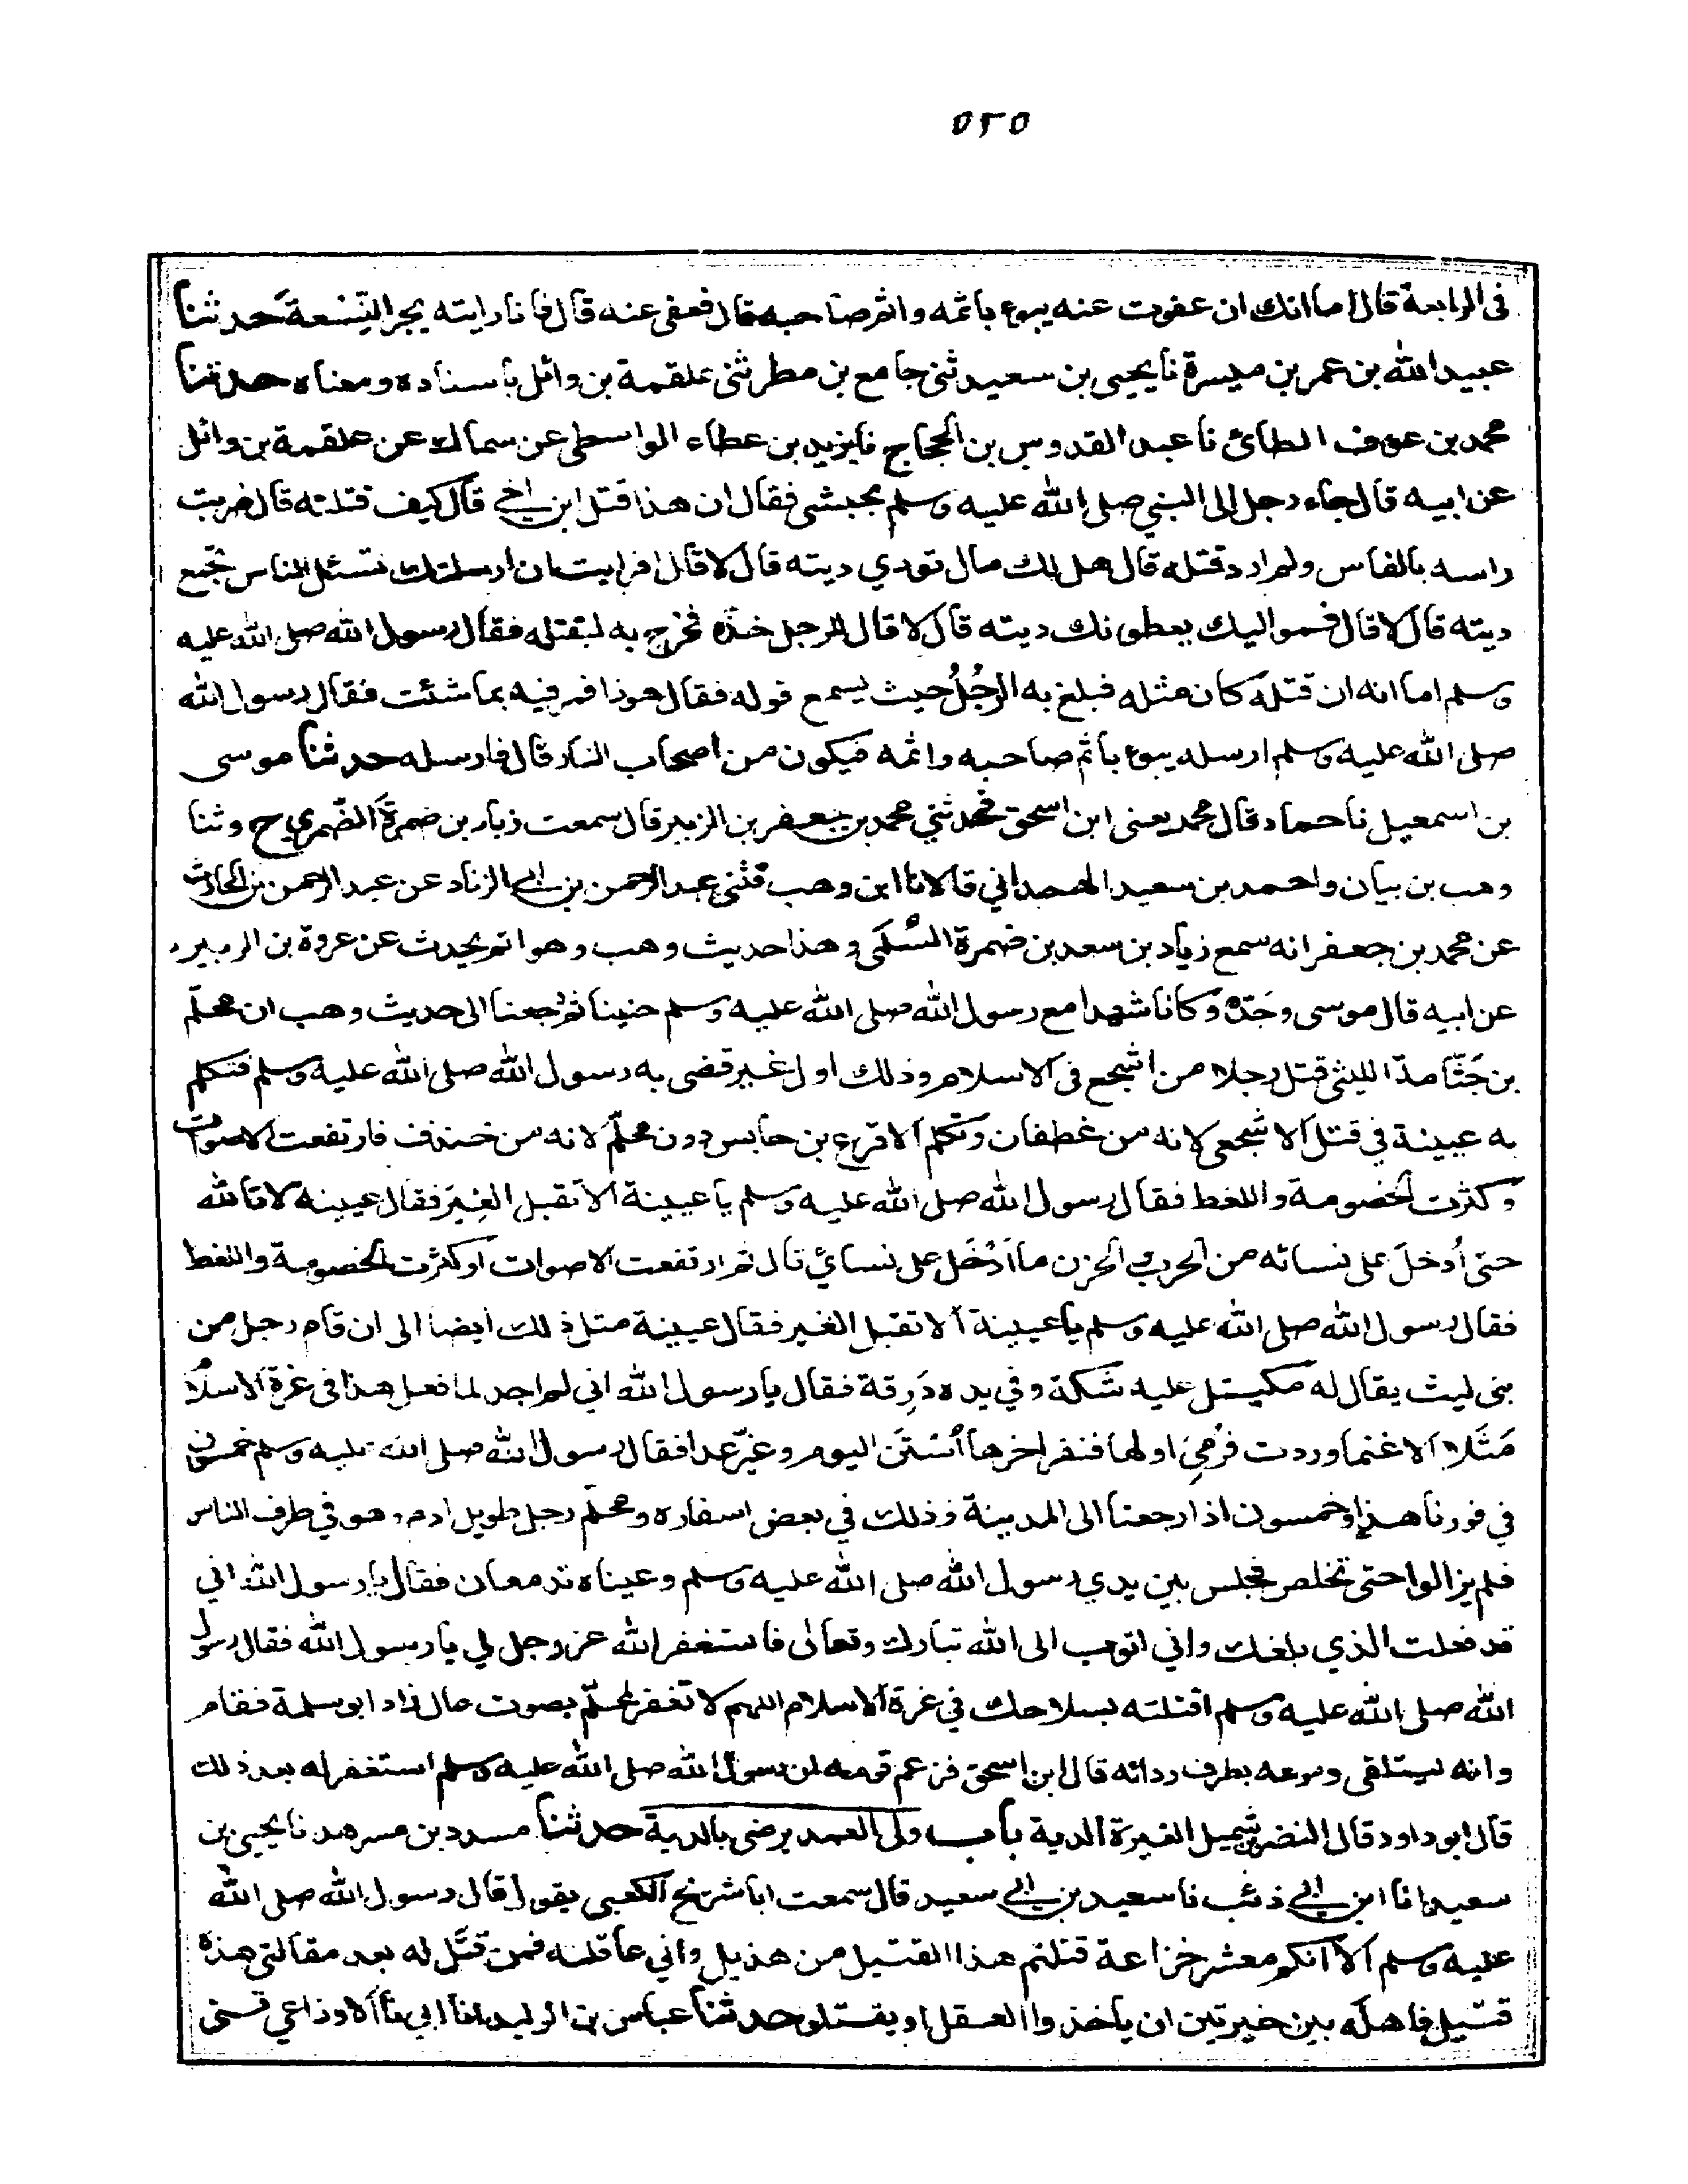 ٥٢٥
فى الرابعة قال اما انك ان عفوت عنه يبوء باثمه واثم صاحبه قال فعفى عنه قال فانا رايته يجر النِّسْعة حدثنا
عبيد الله بن عمر بن ميسرة نا يحيى بن سعيد ثنى جامع بن مطر ثنى علقمة بن وائل باسناده ومعناه حدثنا
محمد بن عوف الطائى نا عبد القدوس بن الحجاج نا يزيد بن عطاء الواسطى عن سماك عن علقمة بن وائل
عن ابيه قال جاء رجل الى النبي صلى الله عليه وسلم بحبشى فقال ان هذا قتل ابن اخي قال كيف قتلته قال ضربت
راسه بالفاس ولم ارد قتله قال هل لك مال تودي ديته قال لا قال افرايت ان ارسلتك تسئل الناس تجمع
ديته قال لا قال فمواليك يعطونك ديته قال لا قال للرجل خذه فخرج به ليقتله فقال رسول الله صلى الله عليه
وسلم اما انه ان قتله كان مثله فبلغ به الرجُلُ حيث يسمع قوله فقال هوذا فمر فيه بما شئت فقال رسول الله
صلى الله عليه وسلم ارسله يبوء باثم صاحبه واثمه فيكون من اصحاب النار قال فارسله حدثنا موسى
بن اسمعيل نا حماد قال محمد يعنى ابن اسحق فحدثني محمد بن جعفر بن الزبير قال سمعت زياد بن ضمرة الضمري ح وثنا
وهب بن بيان واحمد بن سعيد الهمداني قالا نا ابن وهب ثنى عبد الرحمن بن ابي الزناد عن عبد الرحمن بن الحارث
عن محمد بن جعفر انه سمع زياد بن سعد بن ضمرة السُّلَمى وهذا حديث وهب وهو اتم يحدث عن عروة بن الزبير
عن ابيه قال موسى وجَدّه وكانا شهدا مع رسول الله صلى الله عليه وسلم حنينا ثم رجعنا الى حديث وهب ان محلّم
بن جَثّامة الليثى قتل رجلا من اشجع فى الاسلام وذلك اول غير قضى به رسول الله صلى الله عليه وسلم فتكلم
به عيينة في قتل الاشجعى لانه من غطفان وتكلم الاقرع بن حابس دون محلّم لانه من خندف فارتفعت الاصوات
وكثرت الخصومة واللغط فقال رسول الله صلى الله عليه وسلم يا عيينة الا تقبل الغِيَر فقال عيينة لا تالله
حتى اُدخلَ على نسائه من الحرب والحزن ما اَدْخَل على نسائي قال ثم ارتفعت الاصوات اوكثرت الخصومة واللغط
فقال رسول الله صلى الله عليه وسلم يا عيينة الا تقبل الغير فقال عيينة مثل ذلك ايضا الى ان قام رجل من
بنى ليث يقال له مكيتل عليه شكة وفي يده دَرِقة فقال يا رسول الله اني لم اجد لما فعل هذا فى غرة الاسلام
مَثَلا الا غنما وردت فرُمِيَ اولها فنفر اخرها اُسْنُن اليوم وغيّر غدا فقال رسول الله صلى الله عليه وسلم خمسون
في فورنا هذا وخمسون اذا رجعنا الى المدينة وذلك في بعض اسفاره ومحلّم رجل طويل ادم وهو في طرف الناس
فلم يزالوا حتى تخلص فجلس بين يدي رسول الله صلى الله عليه وسلم وعيناه تدمعان فقال يا رسول الله اني
قد فعلت الذي بلغك واني اتوب الى الله تبارك وتعالى فاستغفر الله عز وجل لي يا رسول الله فقال رسول
الله صلى الله عليه وسلم اقتلته بسلاحك في غرة الاسلام اللهم لا تغفر لمحلّم بصوت عال زاد ابو سلمة فقام
وانه ليتلقى دموعه بطرف ردائه قال ابن اسحق فزعم قومه ان رسول الله صلى الله عليه وسلم استغفر له بعد ذلك
قال ابو داود قال النضر بن شميل الغيرة الدية باب ولى العمد يرضى بالدية حدثنا مسدد بن مسرهد نا يحيى بن
سعيد انا ابن ابي ذئب نا سعيد بن ابي سعيد قال سمعت ابا شريح الكعبى يقول قال رسول الله صلى الله
عليه وسلم الا انكم معشر خزاعة قتلتم هذا القتيل من هذيل واني عاقله فمن قتّل له بعد مقالتى هذه
قتيل فاهله بين خيرتين ان ياخذوا العقل او يقتلوا حدثنا عباس بن الوليد انا ابي نا الاوزاعي ثنى